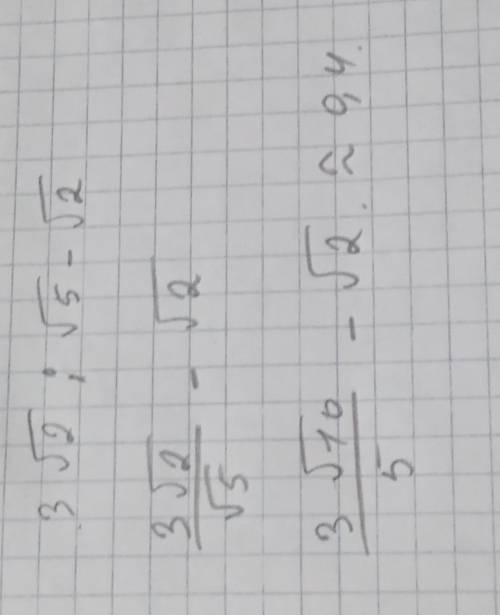 3√2 : √5 - √2
3√2/√5 - √2
3√10/5 - √2. ≈ 0,4.